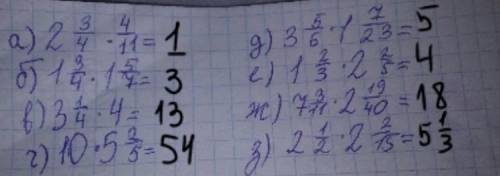 а) 2 3/4 · 4/11 = 1
б) 1 3/4 · 1 5/7 = 3
в) 3 1/4 · 4 = 13
г) 10 · 5 2/5 = 54
д) 3 5/6 · 1 7/23 = 5
е) 1 2/3 · 2 2/5 = 4
ж) 7 3/11 · 2 19/40 = 18
з) 2 1/2 · 2 2/15 = 5 1/3